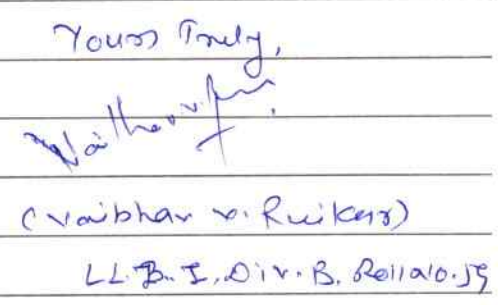 Yours Truly,
(Vaibhav V. Ruikar)
LL.B. I, Div. B, Roll No. 59